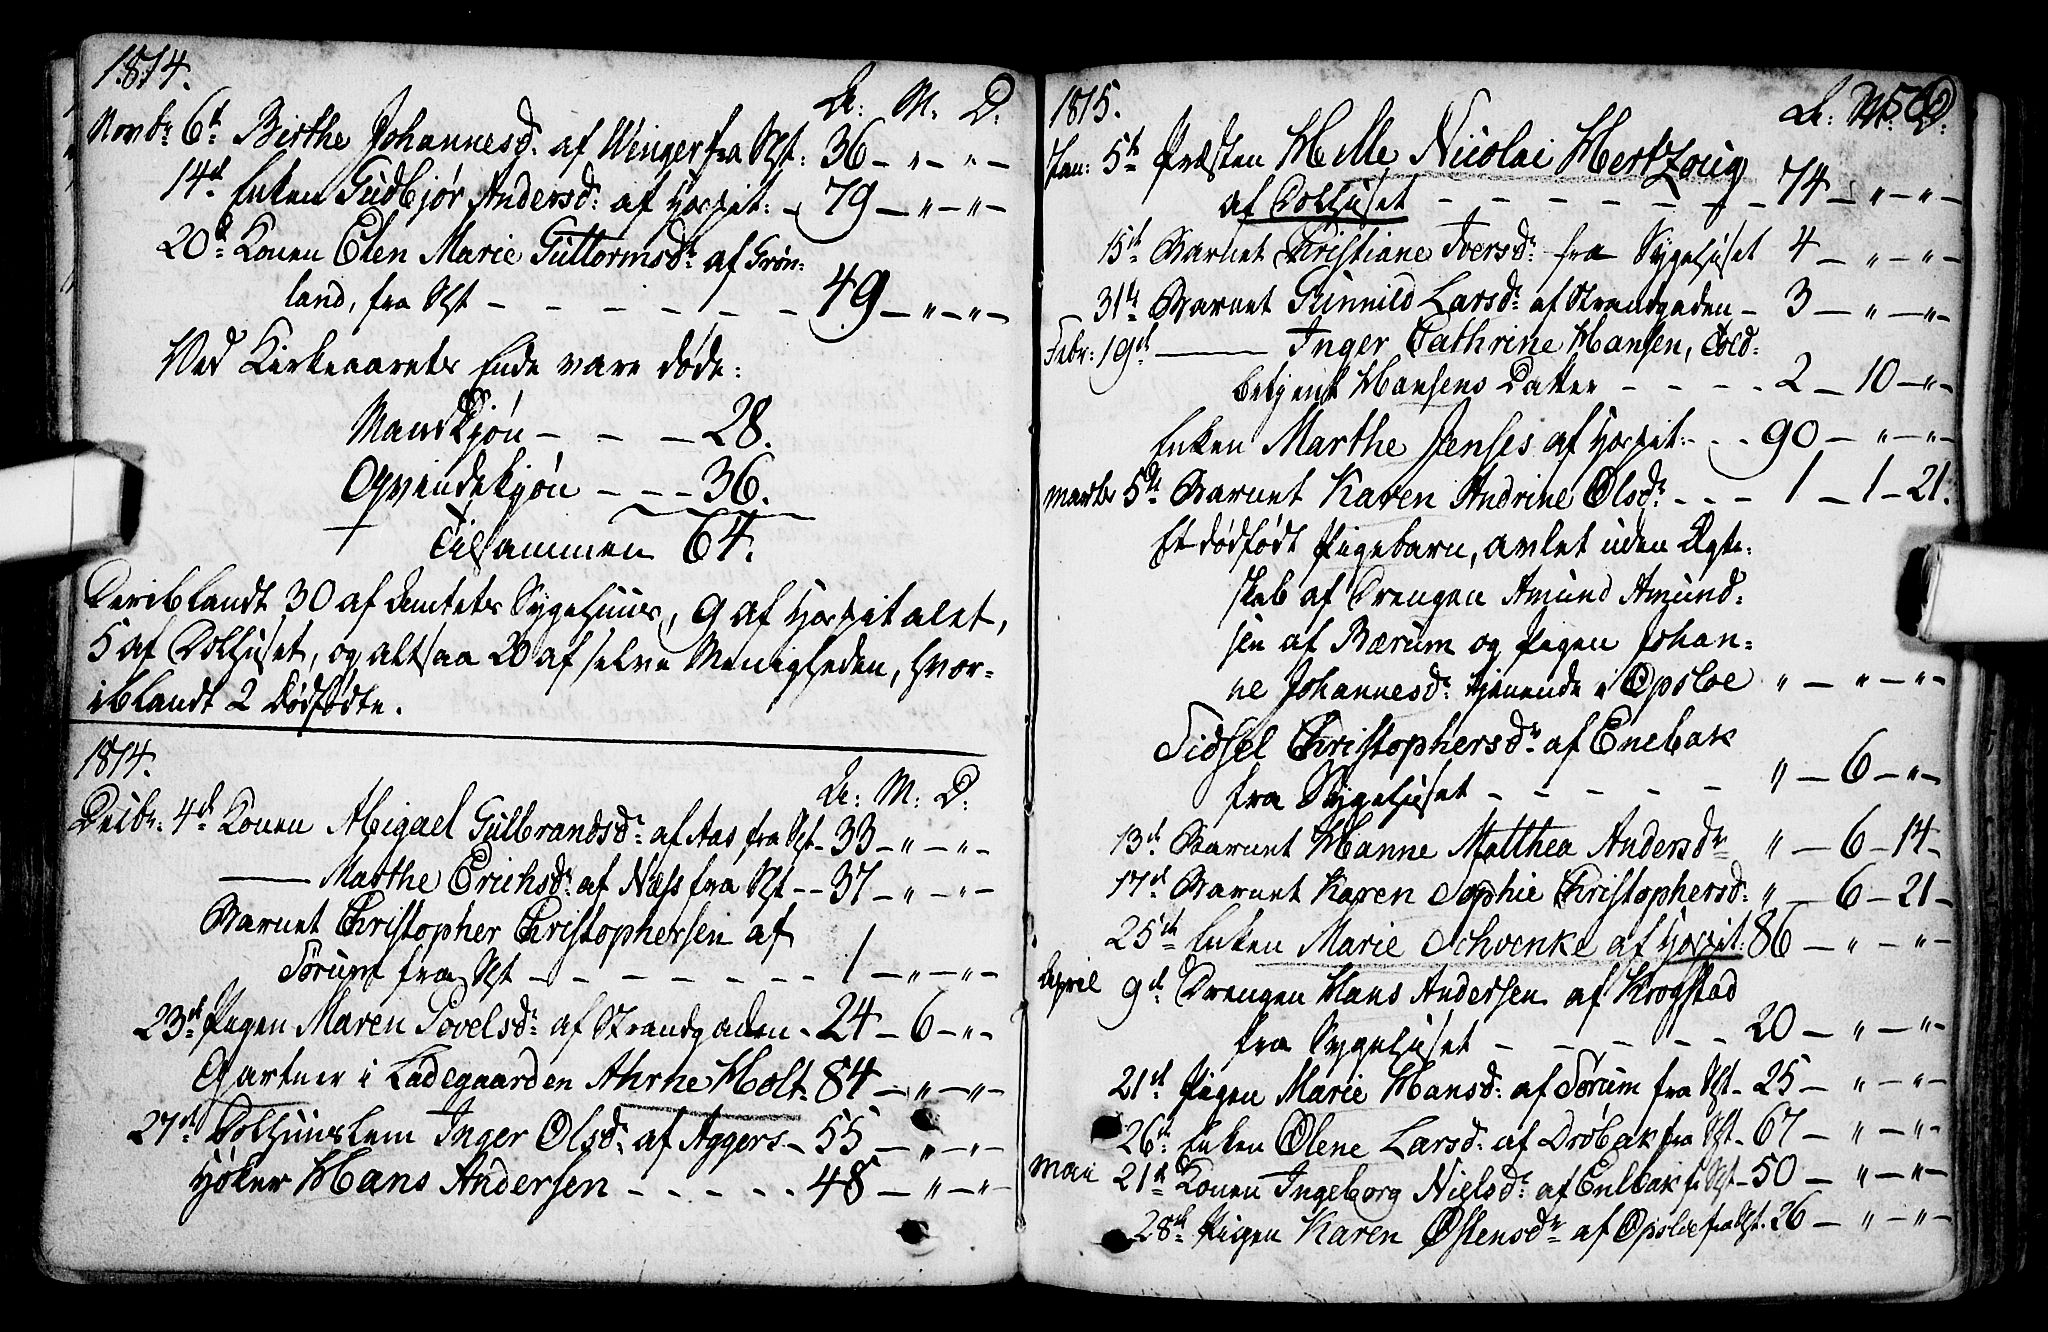 1814.
A: M. D.
Novbr: 6t Birthe Johannesd: af Winger fra Sgt: 36 — " — " —
14d Enken Gudbjør Andersd: af Hospit: — 79 — " — " —
20d Konen Elen Marie Guttormsd: af Grøn-
land, fra Sgt — — — — — — — 49 — " — " —
Ved Kirkeaarets Ende vare døde:
Mandkjøn — — — 28.
Qvindekjøn — — — 36.
Tilsammen 64.
Deriblandt 30 af Amtets Sygehuus, 9 af Hospitalet,
5 af Dolhuset, og altsaa 20 af selve Menigheden, hvor-
iblandt 2 Dødfødte.
1814.
A: M: D:
Decbr: 4d Konen Abigael Gulbrandsd: af Aas fra Sgt — 33 — " — " —
——— Marthe Erichsd: af Næss fra Sgt — — 37 — " — " —
Barnet Christopher Christophersen af
Sørum fra Sgt — — — — — — — 1 — " — " —
23d Pigen Maren Povelsd: af Strandgaden — 24 — 6 — " —
Gartner i Ladegaarden Ahrne Holt — 84 — " — " —
27d Dolhuuslem Inger Olsd: af Aggers — 55 — " — " —
Høker Hans Andersen — — — — — 48 — " — " —
1815.
A: M: D:
Jan: 5te Præsten Helle Nicolai Hertzoug
af Dolhuset — — — — — — — — 74 — " — " —
15de Barnet Christiane Iversd: fra Sygehuset 4 — " — " —
31te Barnet Gunnild Larsd: af Strandgaden — 3 — " — " —
Febr: 19d ——— Inger Cathrine Hansen, Told-
betjent Hansens Datter — — — — 2 — 10 — " —
Enken Marthe Jenses af Hospit: — — 90 — " — " —
Marts 5te Barnet Karen Andrine Olsd: — — — 1 — 1 — 21.
Et dødfødt Pigebarn, avlet uden Ægte-
skab af Drengen Amund Amund-
sen af Bærum og Pigen Johan-
ne Johannesd: tjenende i Opsloe " — " — " —
Sidsel Christophersd: af Enebak
fra Sygehuset — — — — — " — 6 — " —
13d Barnet Hanne Matthea Andersd: " — 6 — 14 —
17d Barnet Karen Sophie Christophersd: " — 6 — 21 —
25de Enken Marie Schvenke af Hospit: 86 — " — " —
April 9d Drengen Hans Andersen af Krogstad
fra Sygehuset — — — — — 20 — " — " —
21d Pigen Marie Hansd: af Sørum fra Sgt — 25 — " — " —
26te Enken Olene Larsd: af Drøbak fra Sgt — 67 — " — " —
Mai 21d Konen Ingeborg Nielsd: af Enebak f: Sgt — 50 — " — " —
28de Pigen Karen Østensd: af Opsloe fra Sgt. 26 — " — " —